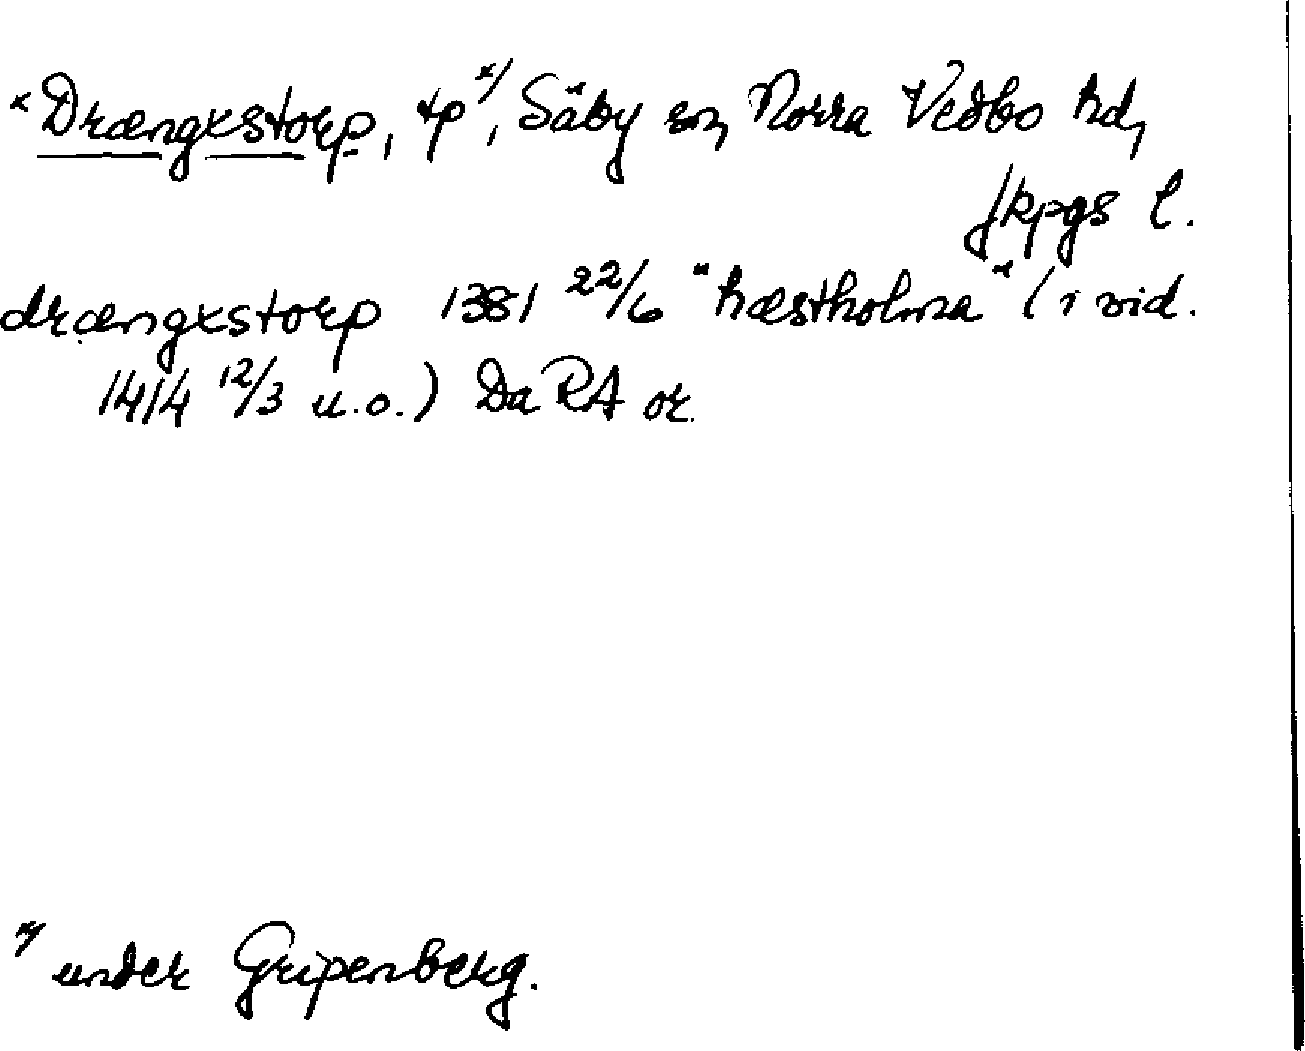 ×Drængxstorp, tp×/, Säby sn, Norra Vedbo hd,
Jkpgs l.
drængxstorp 1381 22/6 "hæstholma" (i vid.
1414 12/3 u.o.) Da RA or.
×/ under Gripenberg.